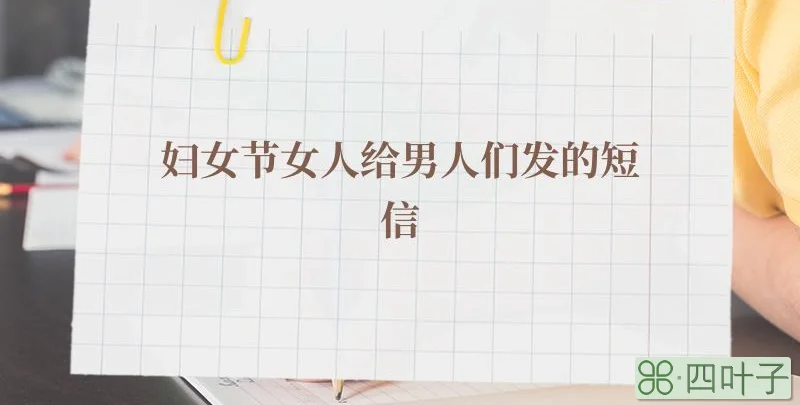 妇女节女人给男人们发的短
信
四叶子